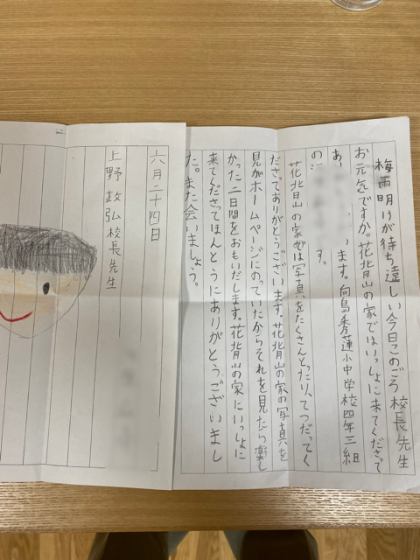 梅雨明けが待ち遠しい今日このごろ校長先生
お元気ですか。花背山の家ではいっしょに来てくださって
あ、ます。向島秀蓮小中学校四年三組
のす。
花背山の家では写真をたくさんとったり、てつだってく
ださってありがとうございます。花背山の家の写真を
見がホームページにのっていたからそれを見たら楽し
かった二日間をおもいだします。花背山の家にいっしょに
来てくださってほんとうにありがとうございまし
た。また会いましょう。
六月二十四日
上野政弘校長先生